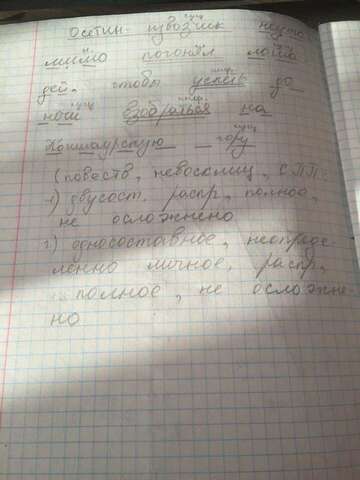 Осетин- извозчик неуто
мимо погонял лоша
дей, чтобы успеть до
ночи взобраться на
Койшаурскую гору
(повеств, невосклиц, СПП:
1) двусост. распр, полное,
не осложнено
2) односоставное, неопреде
ленно личное, распр,
полное, не осложне-
но